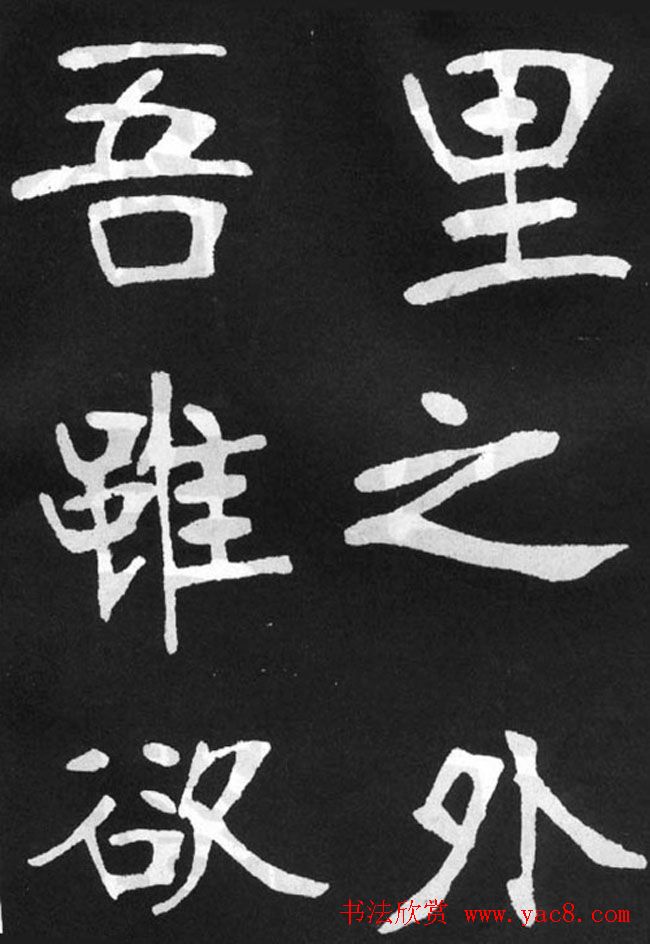 里之外
吾雖欲
书法欣赏 www.yac8.com